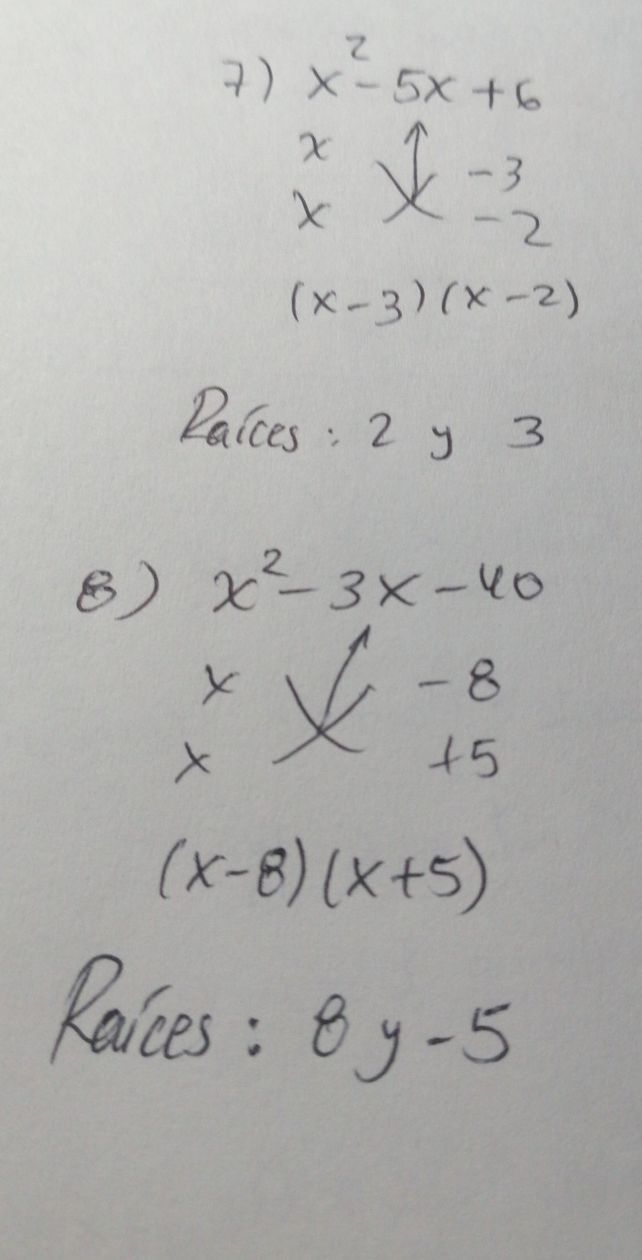 7) x² - 5x + 6
x
-3
x
-2
(x-3)(x-2)
Raíces: 2 y 3
8) x² - 3x - 40
x -8
x +5
(x-8)(x+5)
Raíces: 8 y -5